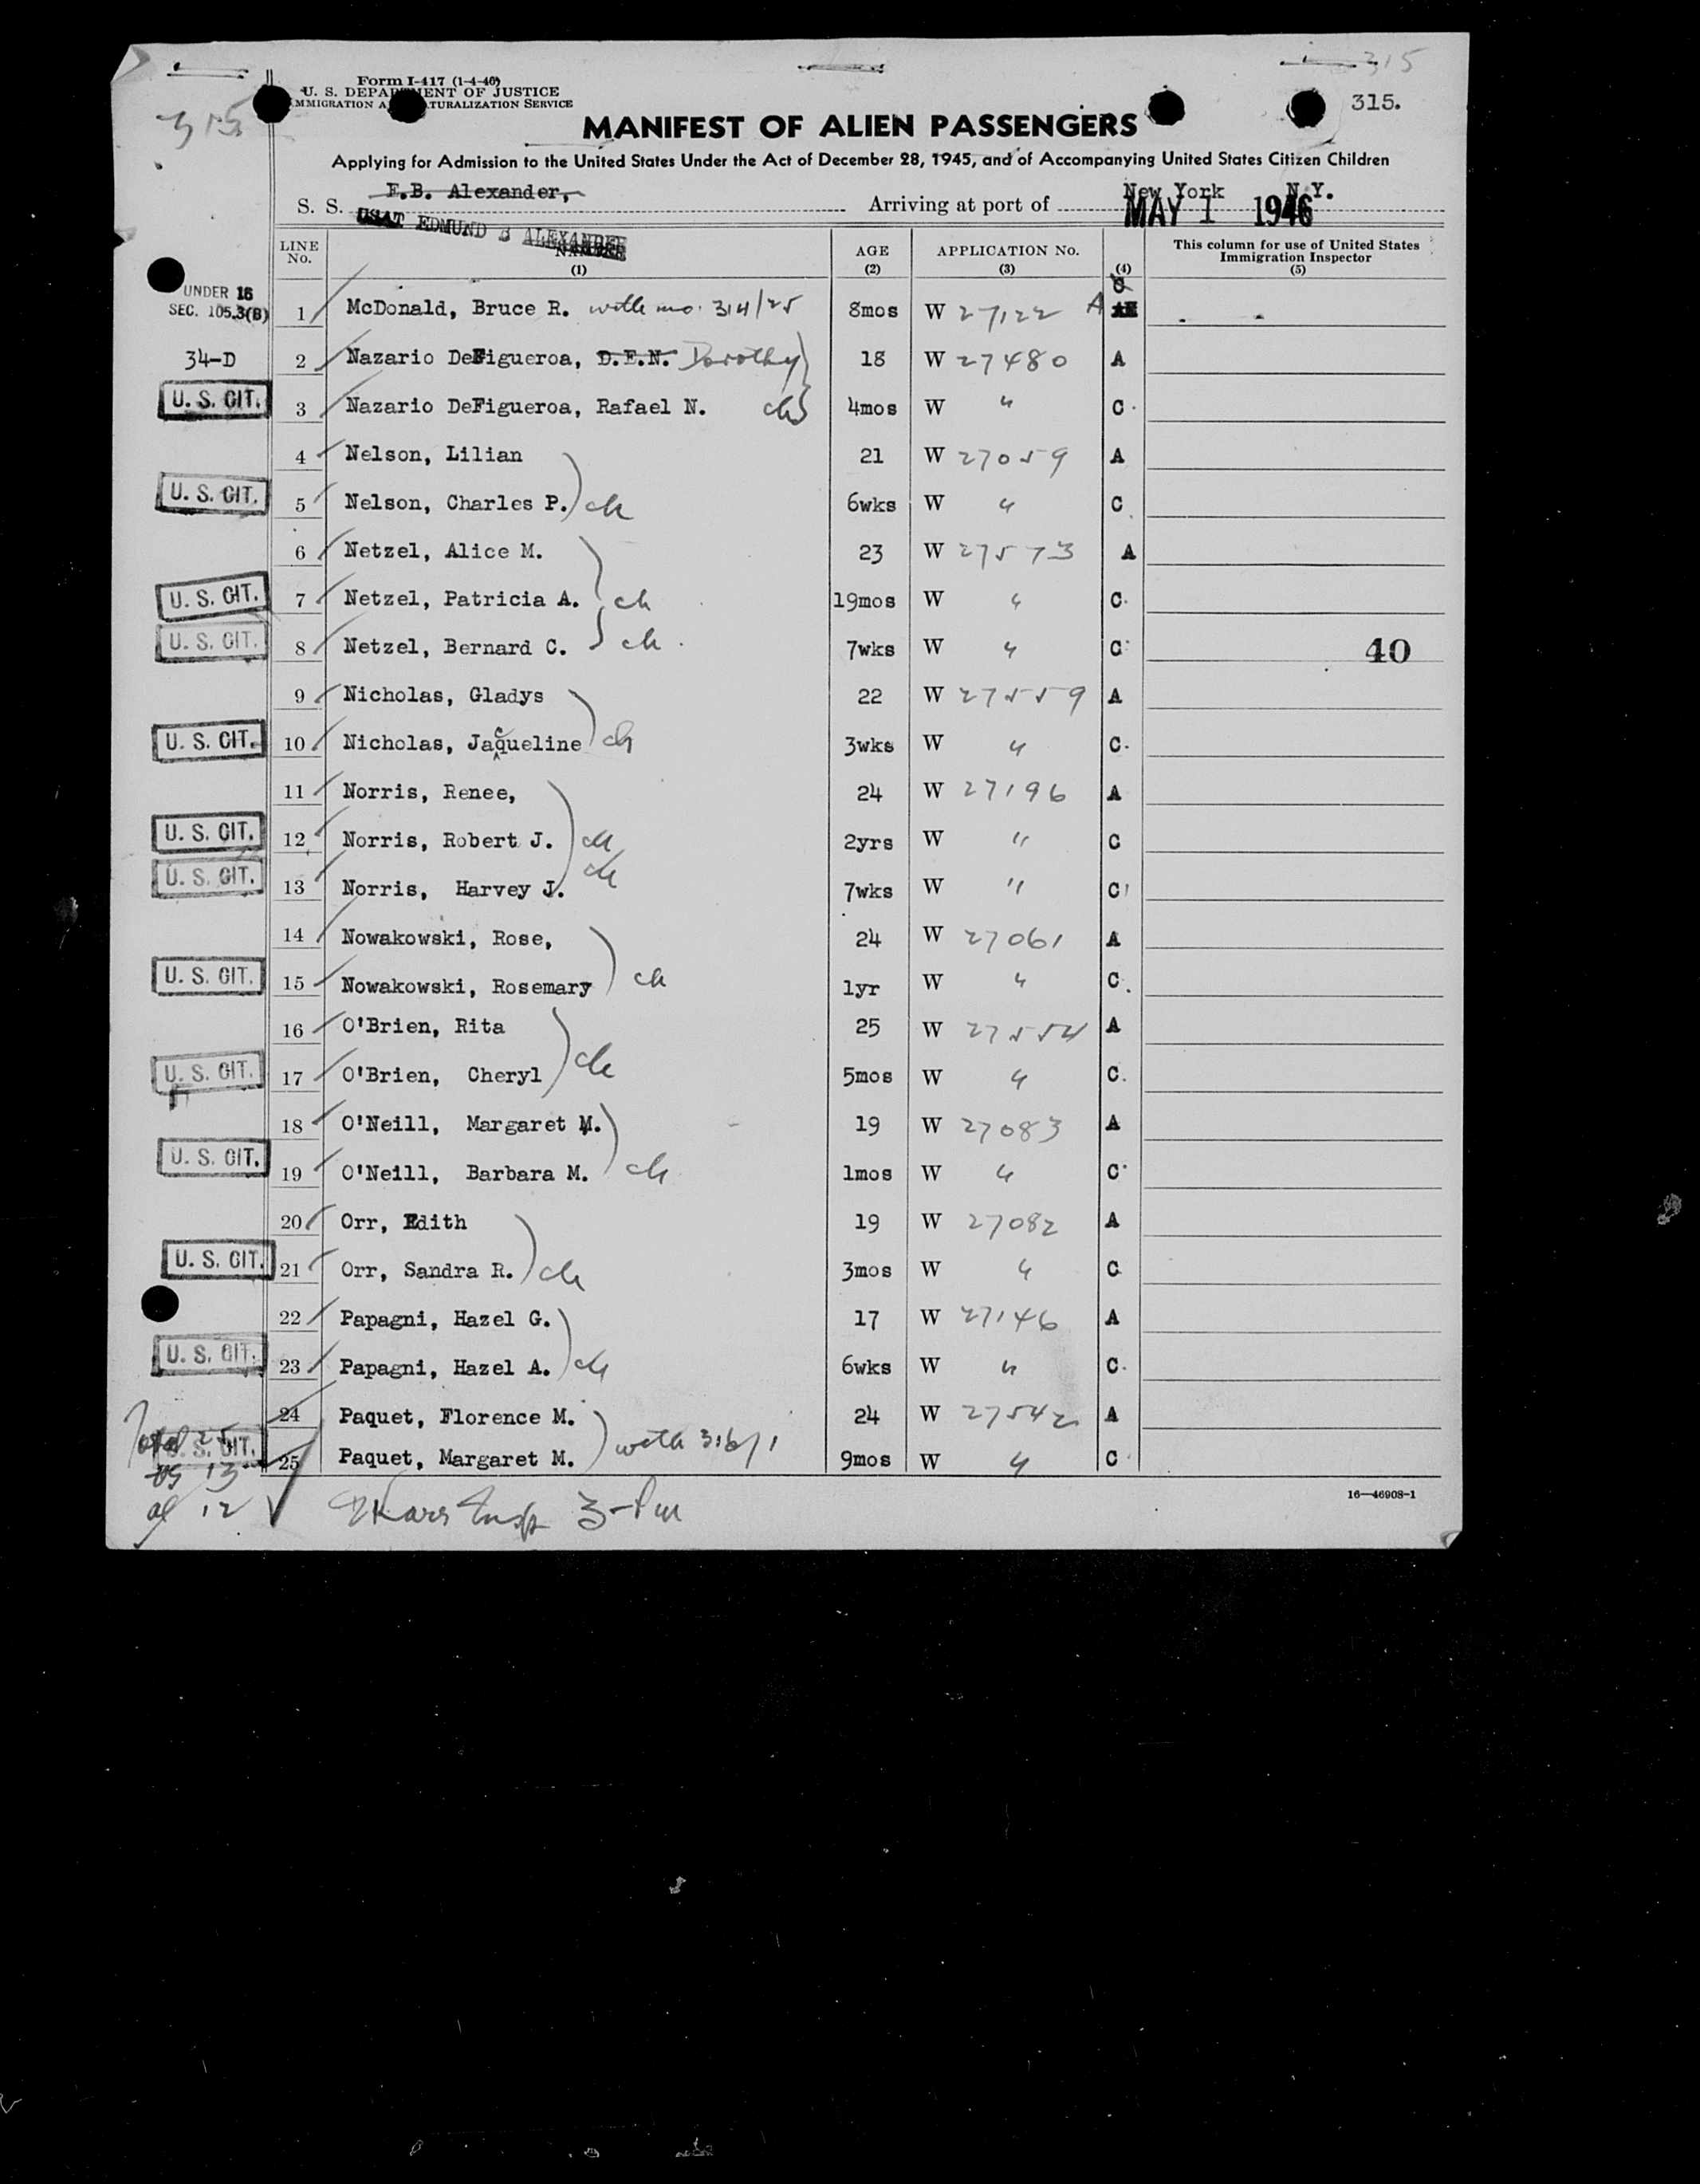 315
315
Form I-417 (1-4-46)
U. S. DEPARTMENT OF JUSTICE
IMMIGRATION AND NATURALIZATION SERVICE
315.
MANIFEST OF ALIEN PASSENGERS
Applying for Admission to the United States Under the Act of December 28, 1945, and of Accompanying United States Citizen Children
S. S. E.B. Alexander, Arriving at port of New York N.Y.
USAT EDMUND B ALEXANDER MAY 1 1946
LINE No. NAME (1) AGE (2) APPLICATION No. (3) (4) This column for use of United States Immigration Inspector (5)
UNDER 16
SEC. 105.3(B) 1 McDonald, Bruce R. with mo. 314/25 8mos W 27122 A
34-D 2 Nazario DeFigueroa, D.E.N. Dorothy 18 W 27480 A
U. S. CIT. 3 Nazario DeFigueroa, Rafael N. ch 4mos W " C
4 Nelson, Lilian 21 W 27059 A
U. S. CIT. 5 Nelson, Charles P. ch 6wks W " C
6 Netzel, Alice M. 23 W 27573 A
U. S. CIT. 7 Netzel, Patricia A. ch 19mos W " C
U. S. CIT. 8 Netzel, Bernard C. ch 7wks W " C 40
9 Nicholas, Gladys 22 W 27559 A
U. S. CIT. 10 Nicholas, Jacqueline ch 3wks W " C
11 Norris, Renee, 24 W 27196 A
U. S. CIT. 12 Norris, Robert J. ch 2yrs W " C
U. S. CIT. 13 Norris, Harvey J. ch 7wks W " C
14 Nowakowski, Rose, 24 W 27061 A
U. S. CIT. 15 Nowakowski, Rosemary ch 1yr W " C
16 O'Brien, Rita 25 W 27554 A
U. S. CIT. 17 O'Brien, Cheryl ch 5mos W " C
18 O'Neill, Margaret M. 19 W 27083 A
U. S. CIT. 19 O'Neill, Barbara M. ch 1mos W " C
20 Orr, Edith 19 W 27082 A
U. S. CIT. 21 Orr, Sandra R. ch 3mos W " C
22 Papagni, Hazel G. 17 W 27146 A
U. S. CIT. 23 Papagni, Hazel A. ch 6wks W " C
24 Paquet, Florence M. 24 W 27542 A
U. S. CIT. 25 Paquet, Margaret M. with 316/1 9mos W " C
Total 25
US 13
al 12
Insp 3-PM
16—46908-1